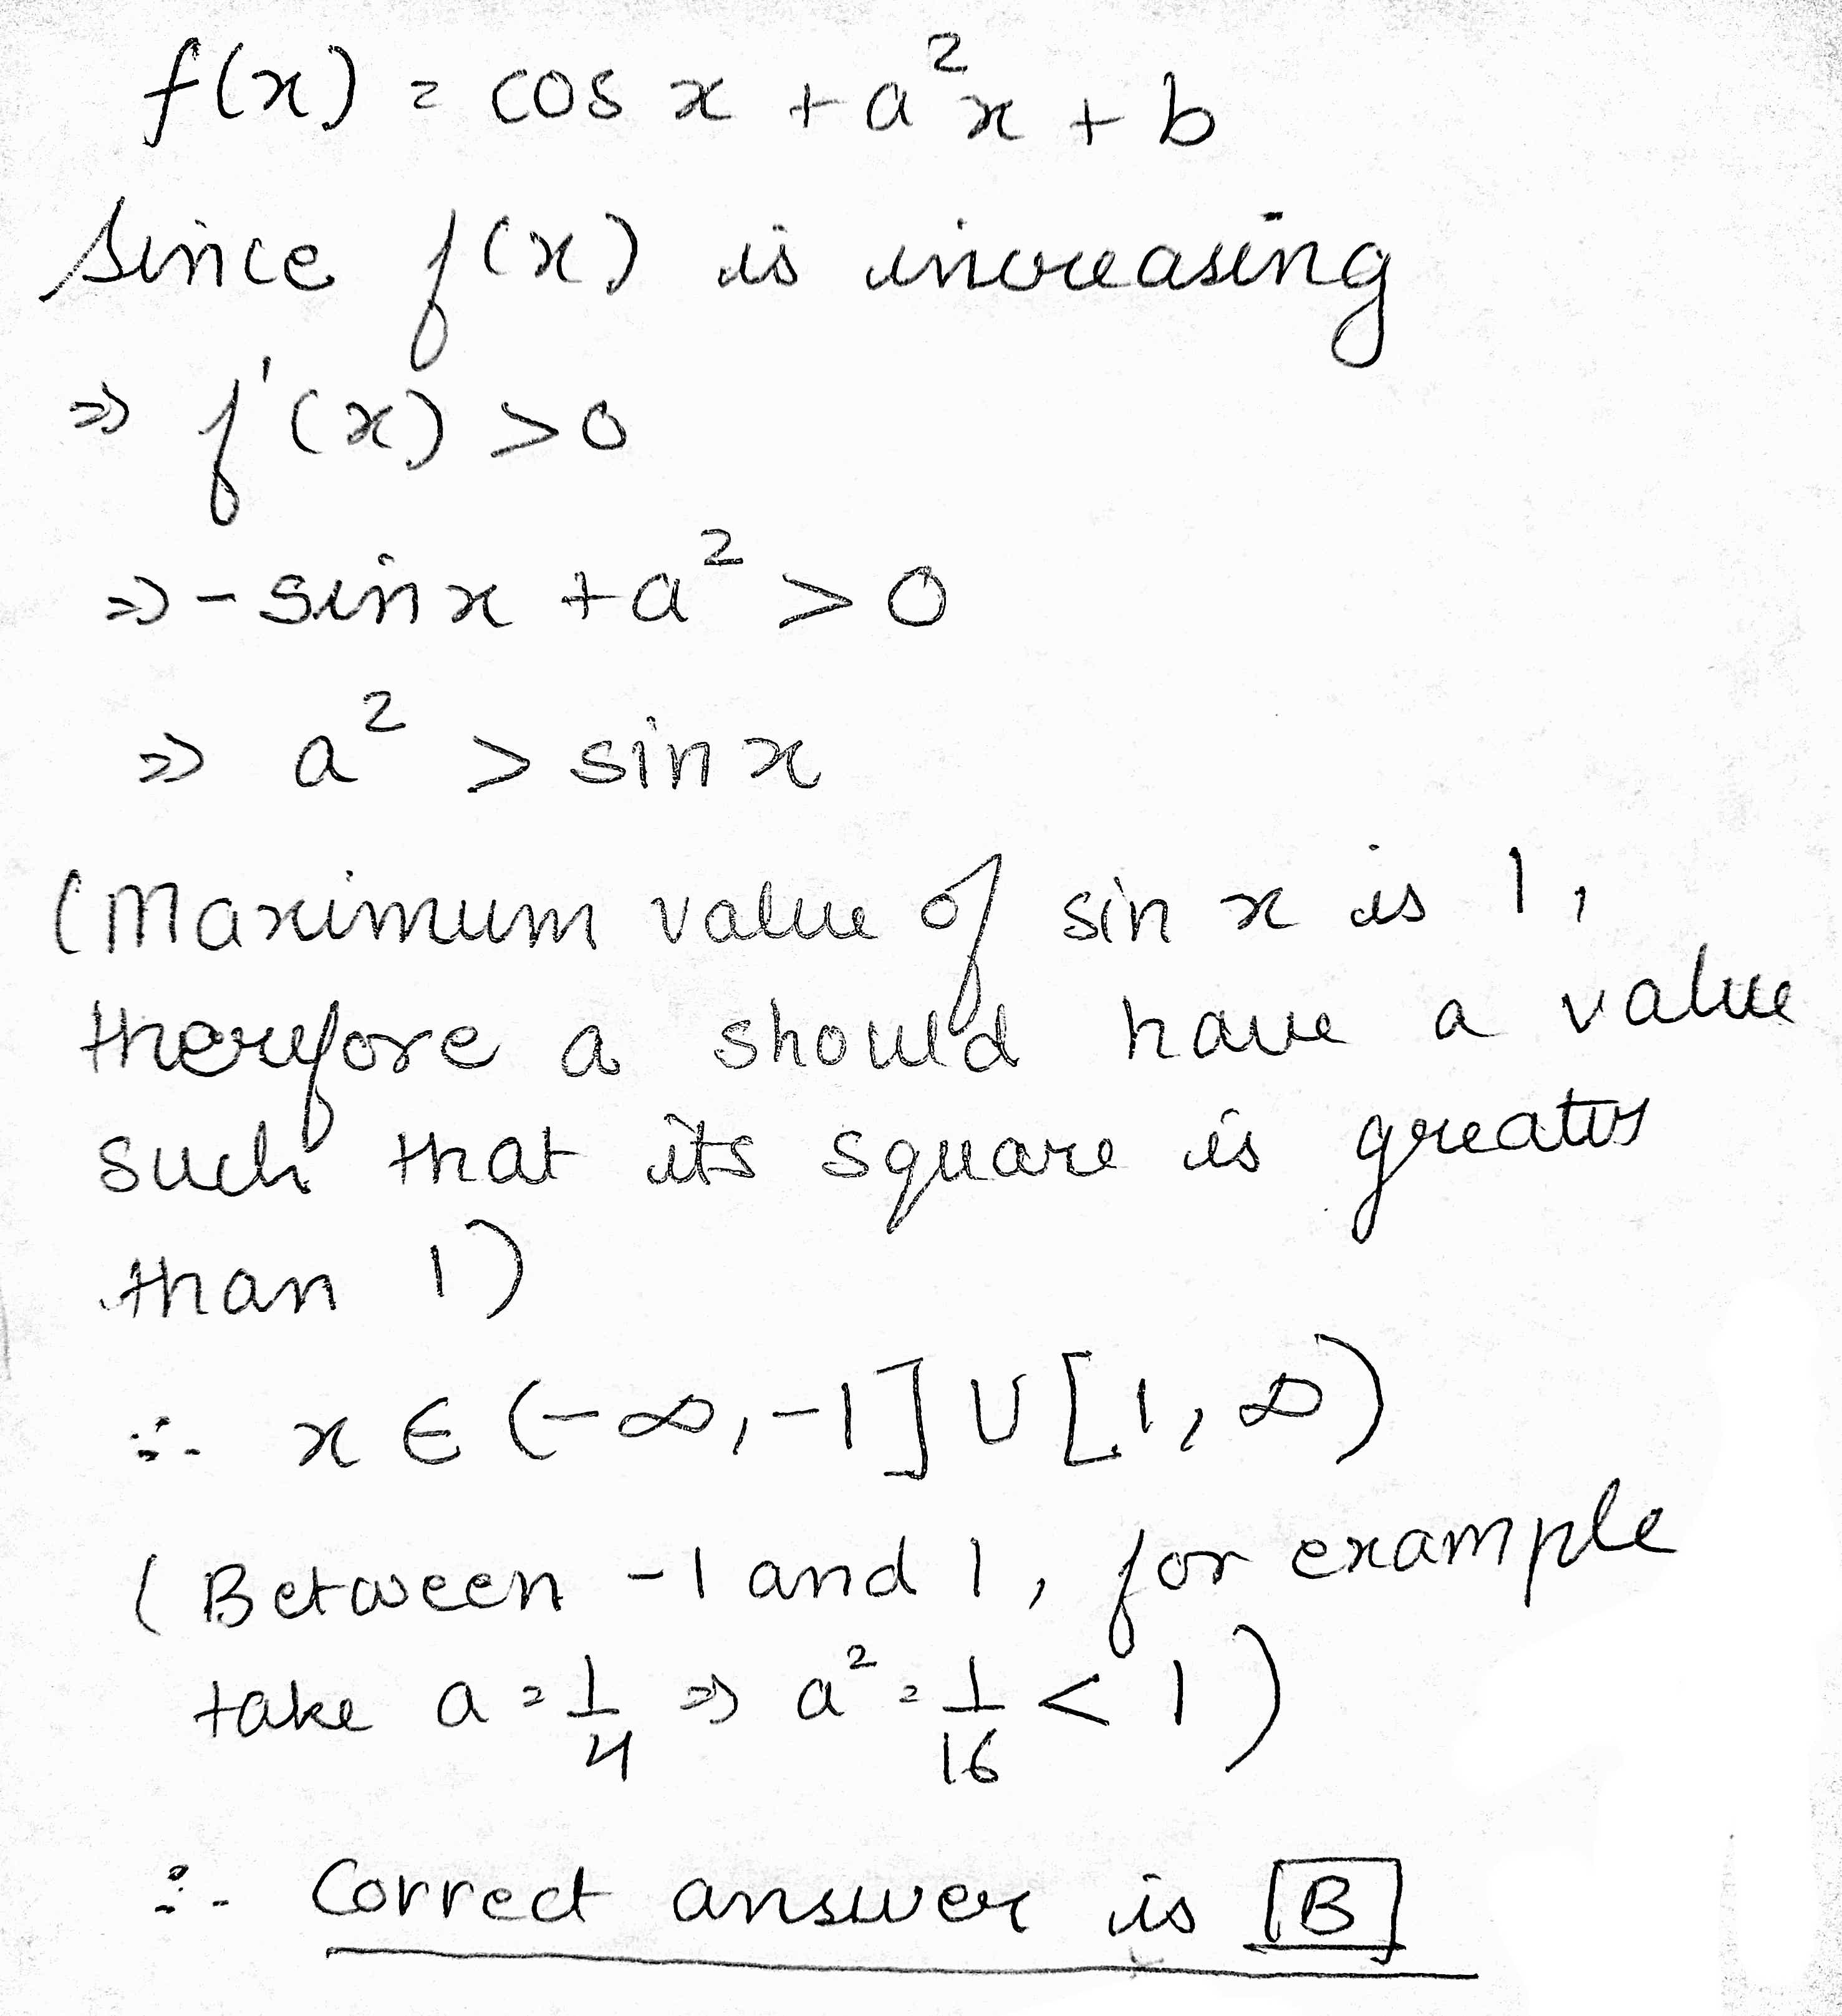 f(x) = cos x + a²x + b
Since f(x) is increasing
⇒ f'(x) > 0
⇒ - sin x + a² > 0
⇒ a² > sin x
(Maximum value of sin x is 1,
therefore a should have a value
such that its square is greater
than 1)
∴ x ∈ (-∞, -1] ∪ [1, ∞)
(Between -1 and 1, for example
take a = 1/4 ⇒ a² = 1/16 < 1)
∴ Correct answer is [B]